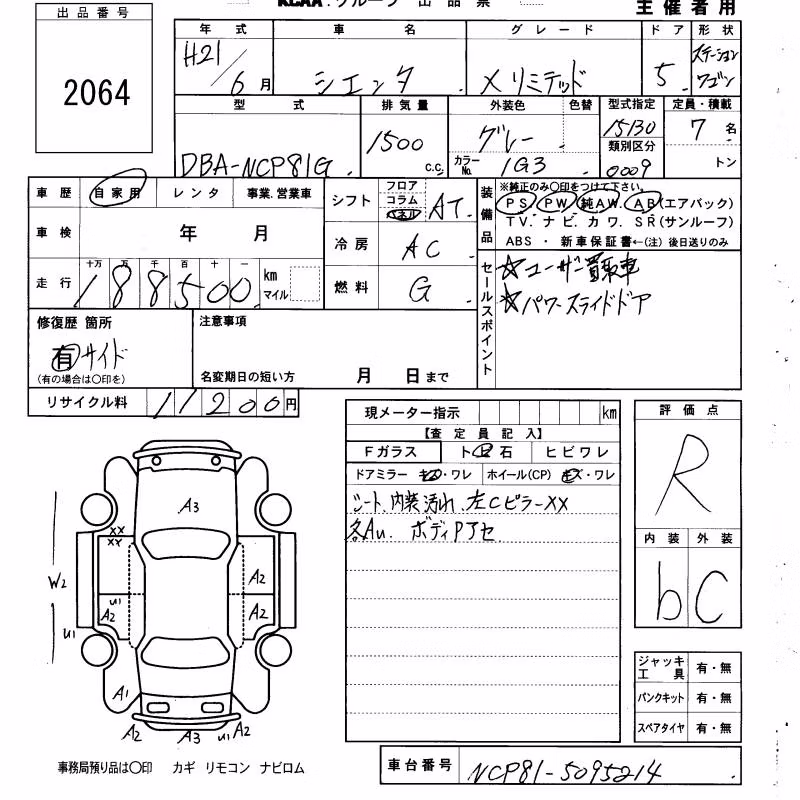 KCAA・グループ 出 品 票
主 催 者 用
出 品 番 号
2064
年 式
車 名
グ レ ー ド
ド ア
形 状
H21/6 月
シエンタ
X リミテッド
5
ステーションワゴン
型 式
排 気 量
外装色
色替
型式指定
定員・積載
15130
7 名
DBA-NCP81G
1500 c.c.
グレー
類別区分
カラーNo.
1G3
0009
トン
車 歴
自家用
レンタ
事業.営業車
シフト
フロア
コラム
パネル
AT
装備品
※純正のみ○印をつけて下さい。
PS PW 純AW. AB(エアバック)
車 検
年 月
TV. ナ ビ. カ ワ. SR(サンルーフ)
冷 房
AC
ABS ・ 新車保証書←(注) 後日送りのみ
走 行
十万 万 千 百 十 一
188500
km
マイル
燃 料
G
セールスポイント
☆ユーザー買取車
☆パワースライドドア
修復歴 箇所
有 サイド
(有の場合は○印を)
注意事項
名変期日の短い方 月 日まで
リサイクル料
11200円
現メーター指示
km
評 価 点
【査 定 員 記 入】
Fガラス
ト ビ 石
ヒ ビ ワ レ
R
ドアミラー キズ・ワレ
ホイール(CP) キズ・ワレ
シート、内装汚れ 左Cピラー XX
各AU. ボディPアセ
内 装
外 装
b
C
A3
XX
XY
A2
W2
U1
A2
A2
U1
A1
A2
A3
U1
A2
ジャッキ工 具
有・無
パンクキット
有・無
スペアタイヤ
有・無
事務局預り品は○印 カギ リモコン ナビロム
車台番号
NCP81-5095214